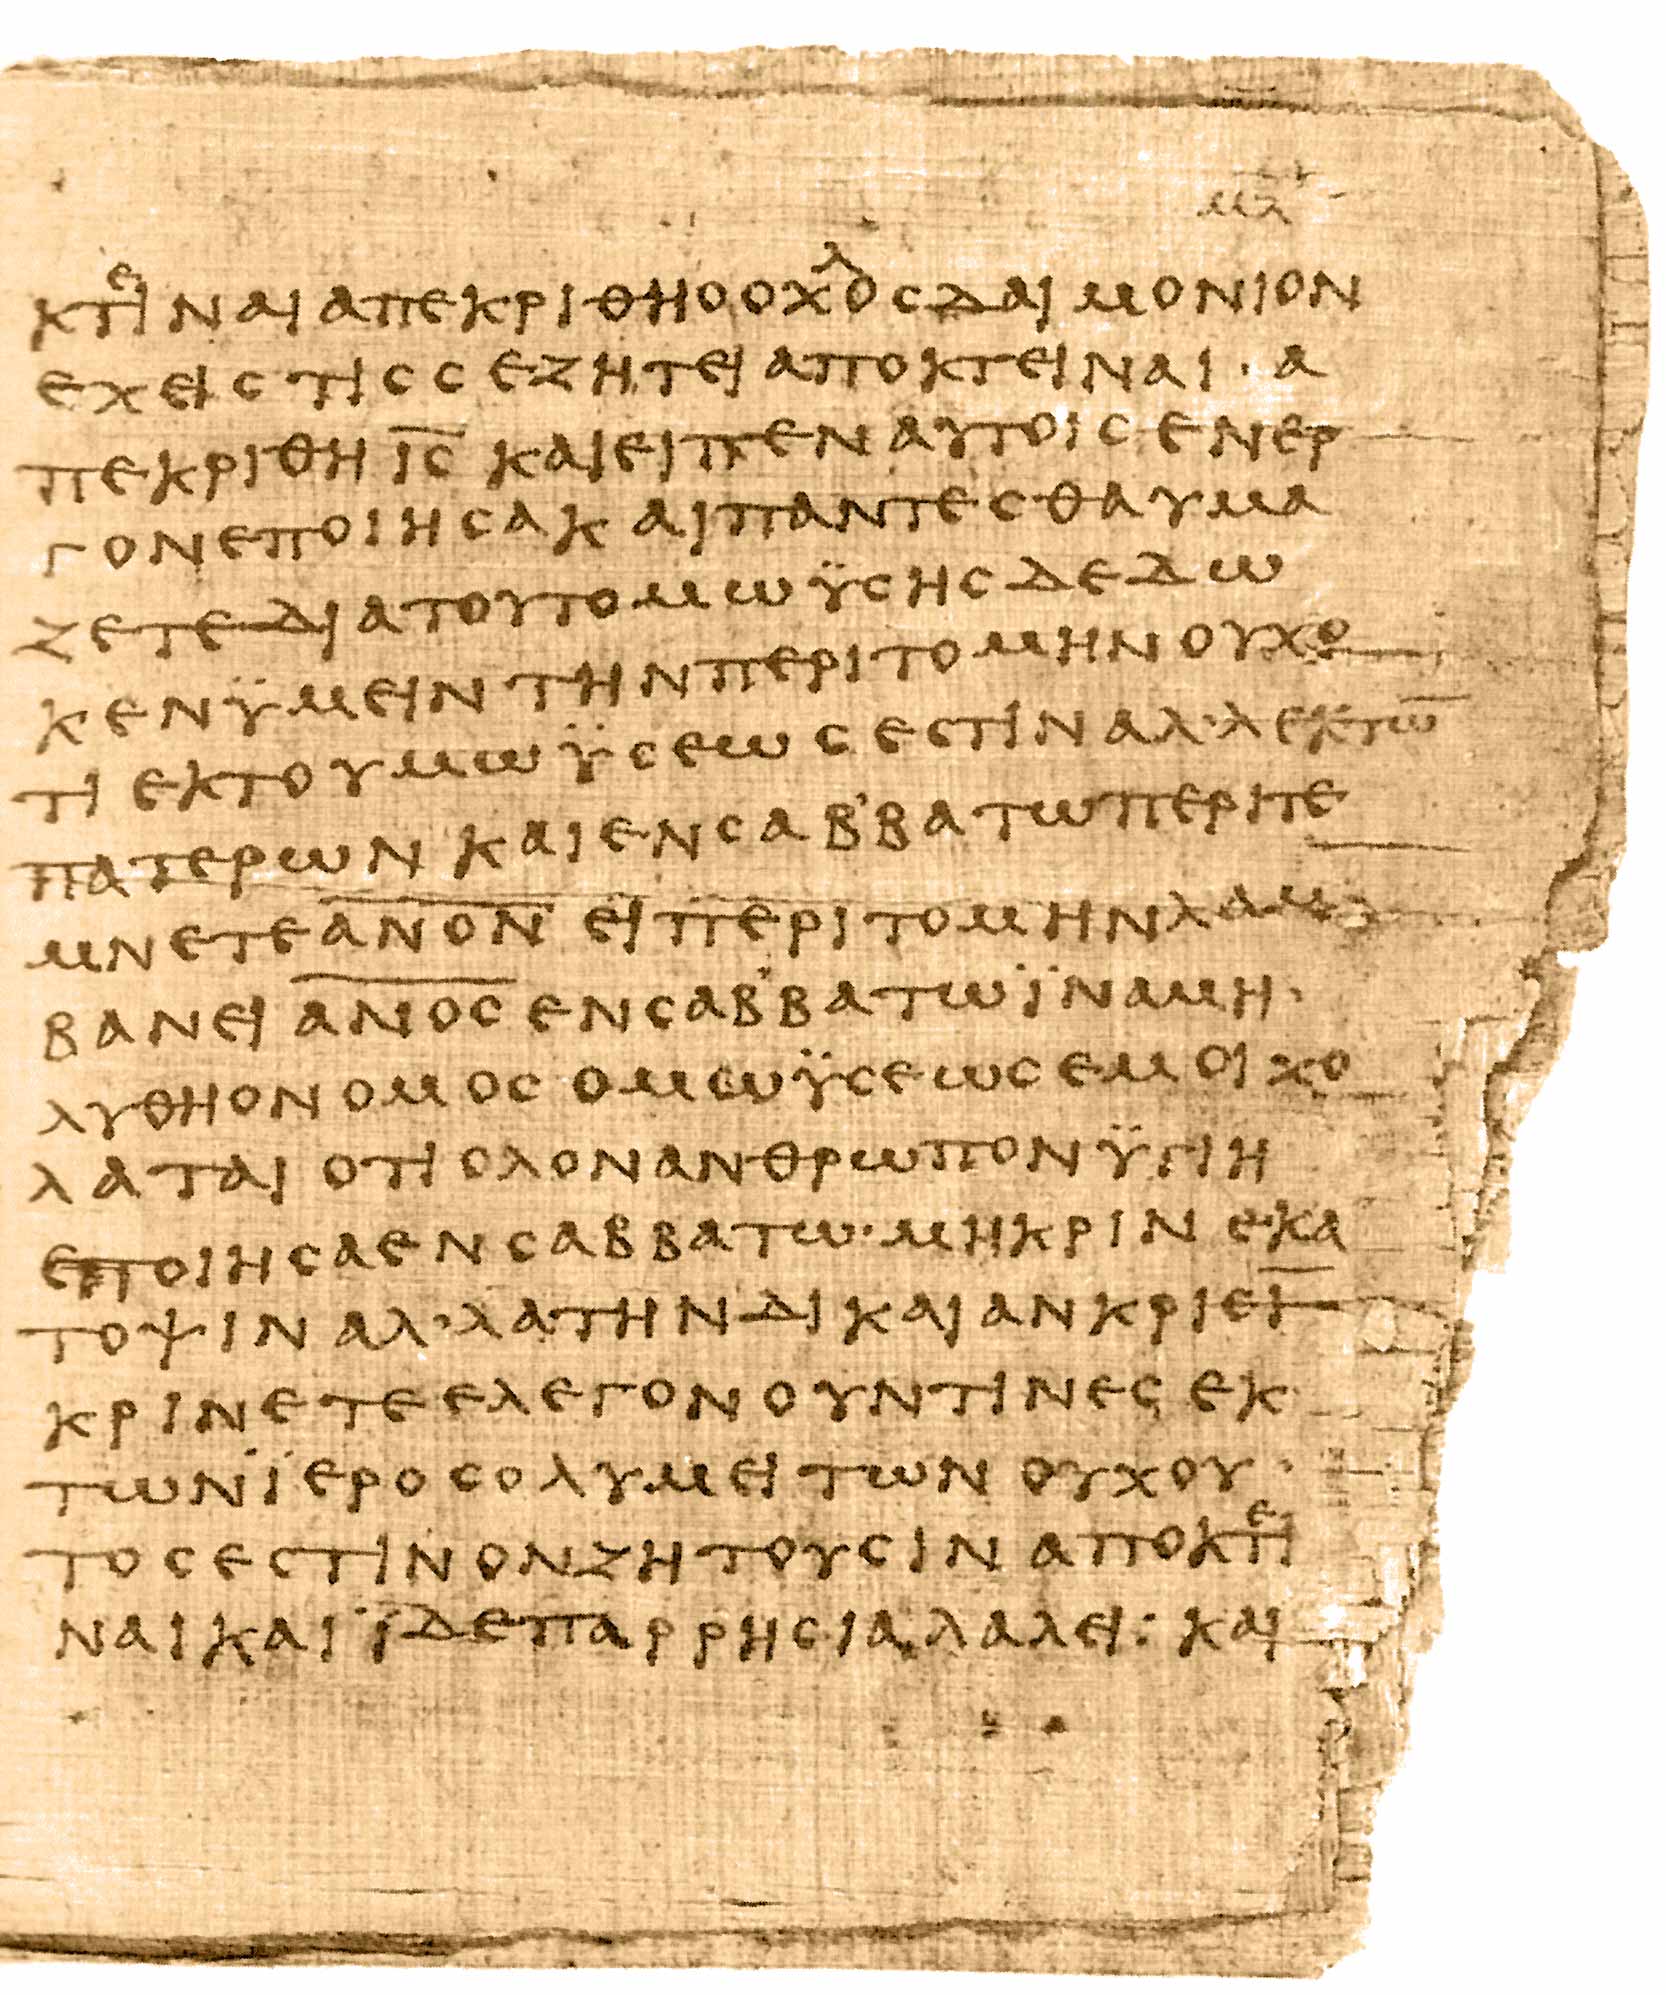 μα
κτ⸌ε⸍ιναιαπεκριθηοοχ⸌λ⸍οςδαιμονιον
εχειςτιςςεζητειαποκτειναι·α
πεκριθηι̅ς̅καιειπεναυτοιςενερ
γονεποιησακαιπαντεςθαυμα
ζετεδιατουτομωϋσηςδεδω
κενϋμειντηνπεριτομηνουχο
τιεκτουμωϋσεωςεστιναλ·λεκτω̅
πατερωνκαιενσαβ’βατωπεριτε
μνετεα̅ν̅ο̅ν̅ειπεριτομηνλαμ
βανεια̅ν̅ο̅ς̅ενσαβ’βατωϊναμη·
λυθηονομοςομωϋσεωςεμοιχο
λαταιοτιολονανθρωπονϋγιη
εποιησαενσαββατω·μηκρινεκα
τοψιναλ·λατηνδικαιανκρισι̅
κρινετεελεγονουντινεςεκ
τωνϊεροσολυμειτωνουχου·
τοςεστινονζητουσιναποκτ⸌ε⸍ι
ναικαιϊδεπαρρησιαλαλει:και